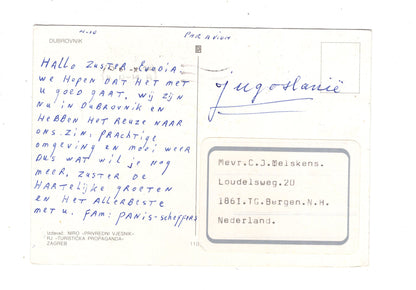 PAR AVION
DUBROVNIK
HALLO ZUSTER. Eudia.
we HOPEN DAT HET MET
U GOED GAAT, wij zijn
NU IN DUBROVNIK en
HEBBEN HET REUZE NAAR
ONS ZIN. PRACHTIGE
omgeving en mooi weer
DUS WAT wil je NOG
meer. ZUSTER DE
HARTELIJKE GROETEN
en HET ALLERBESTE
MET U. FAM: PANIS-SCHEFFERS
Jugoslanië
Mevr.C.J.Meiskens.
Loudelsweg.20
1861.TG.Bergen.N.H.
Nederland.
Izdavač: NIRO «PRIVREDNI VJESNIK»
RJ «TURISTIČKA PROPAGANDA»
ZAGREB